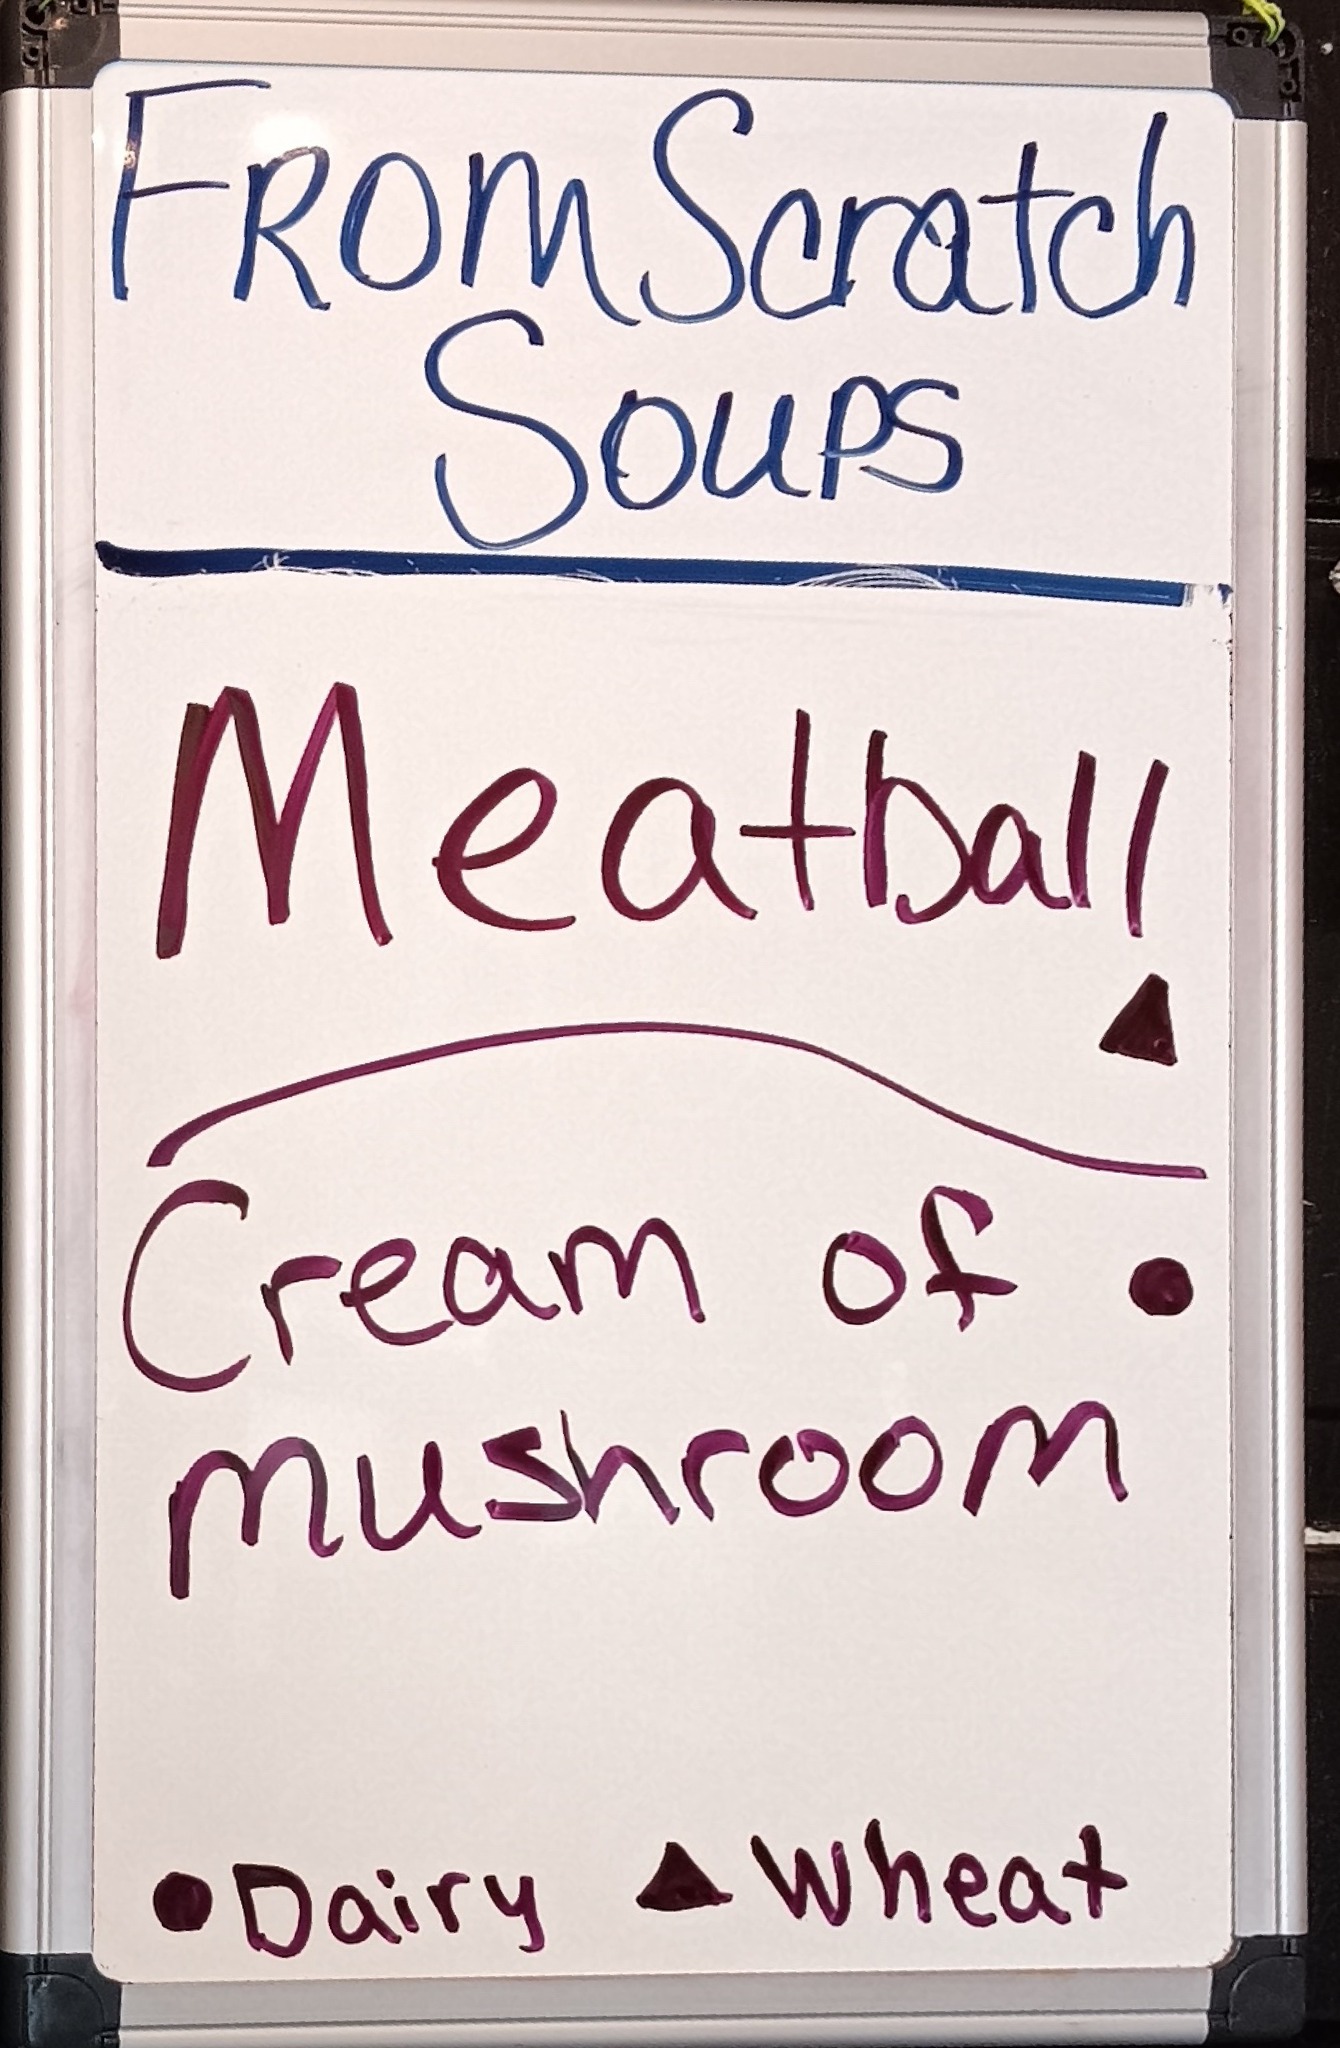 From Scratch
Soups
Meatball
▲
Cream of ●
mushroom
● Dairy ▲ Wheat